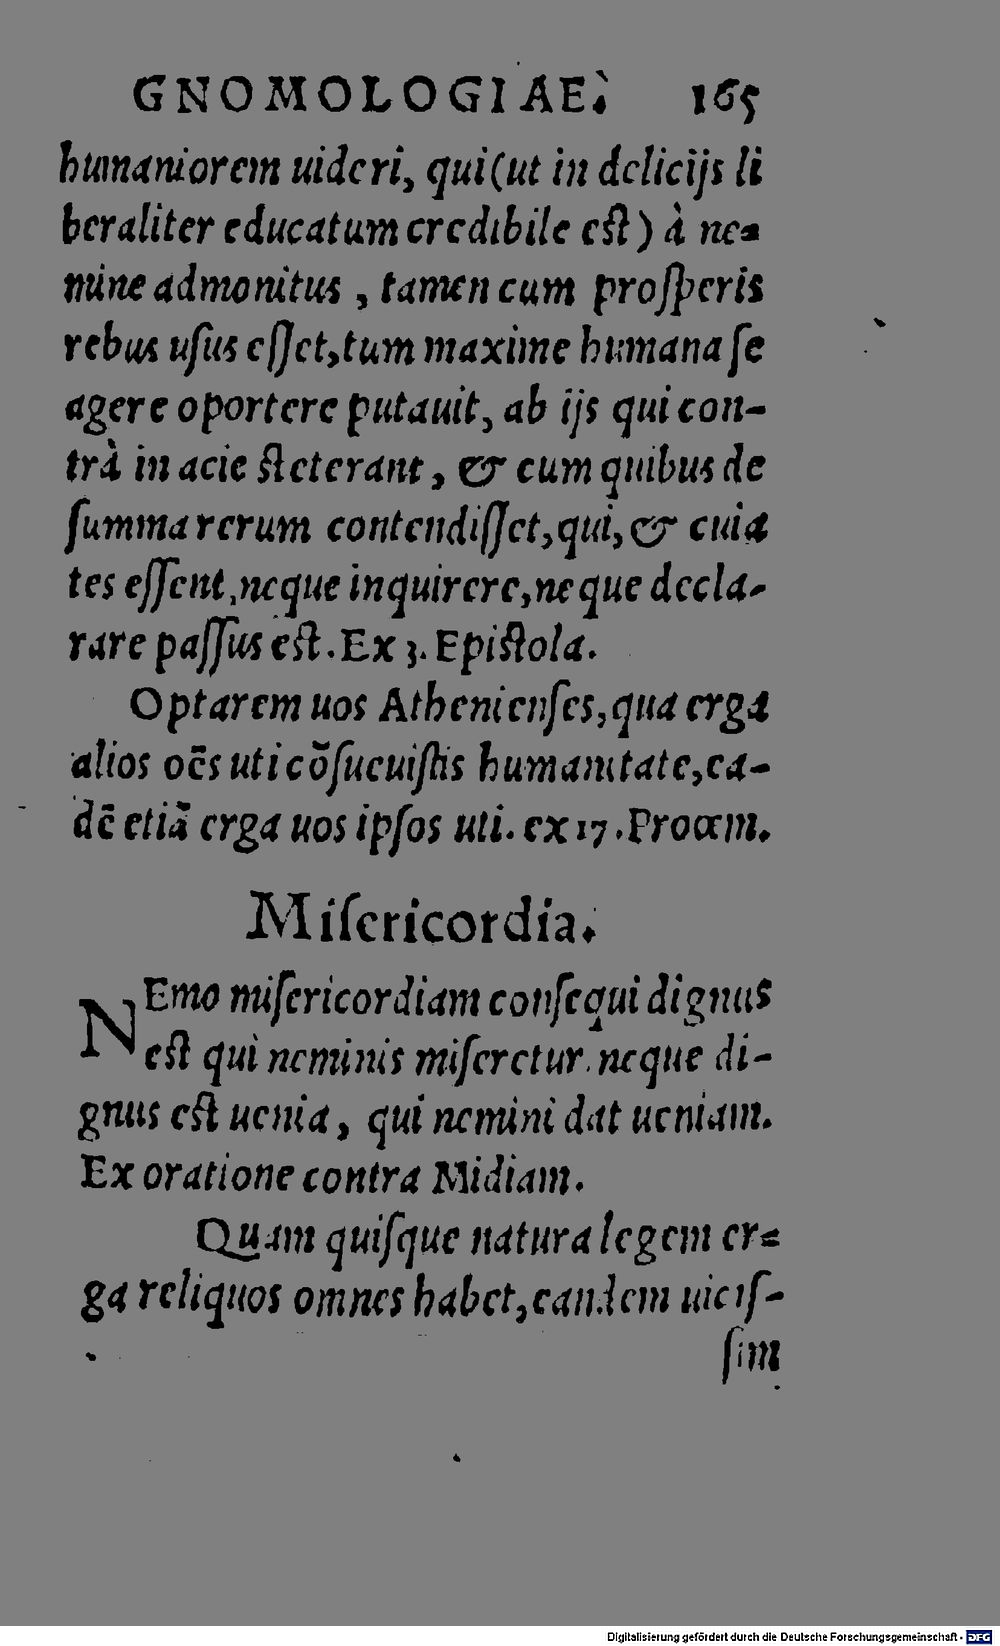 GNOMOLOGIAE. 165
humaniorem uideri, qui (ut in delicijs li
beraliter educatum credibile est) à ne-
mine admonitus, tamen cum prosperis
rebus usus esset, tum maxime humana se
agere oportere putauit, ab ijs qui con-
trà in acie steterant, & cum quibus de
summa rerum contendisset, qui, & cuia
tes essent, neque inquirere, neque decla-
rare passus est. Ex 3. Epistola.
Optarem uos Athenienses, qua erga
alios oēs uti cōsueuistis humanitate, ea-
dē etiā erga uos ipsos uti. ex 17. Proœm.
Misericordia.
NEmo misericordiam consequi dignus
est qui neminis miseretur. neque di-
gnus est uenia, qui nemini dat ueniam.
Ex oratione contra Midiam.
Quam quisque natura legem er-
ga reliquos omnes habet, eandem uicis-
sim
Digitalisierung gefördert durch die Deutsche Forschungsgemeinschaft - DFG